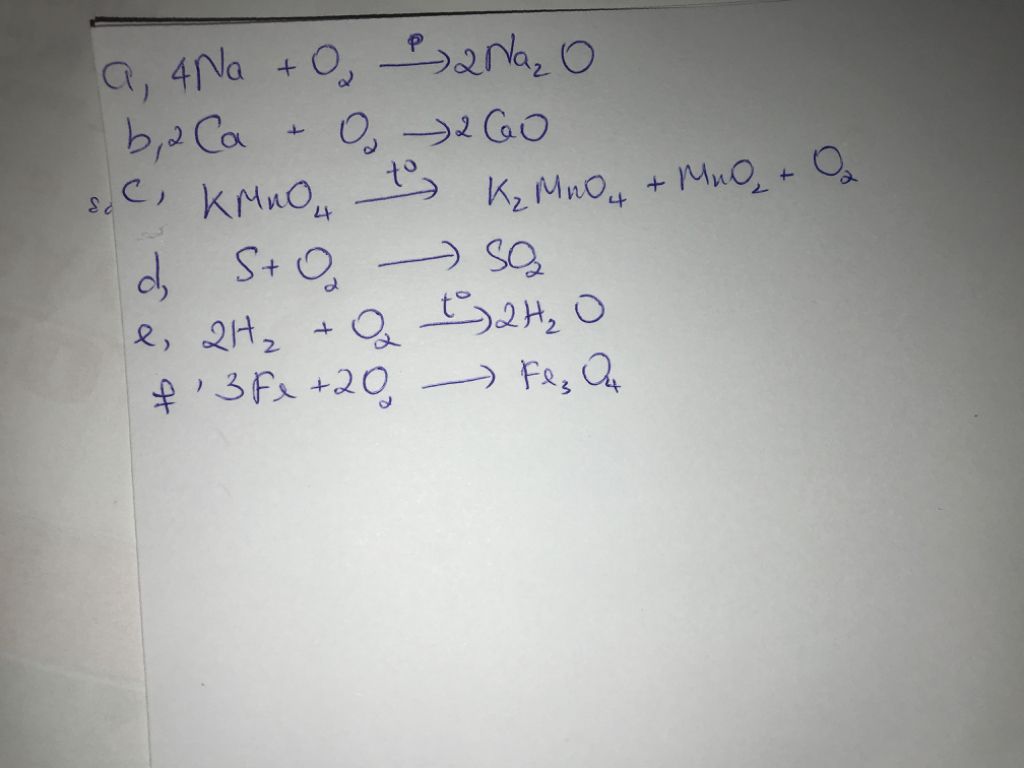 a, 4Na + O₂ →ᵖ 2Na₂O
b, 2Ca + O₂ → 2CaO
c, KMnO₄ →t° K₂MnO₄ + MnO₂ + O₂
d, S + O₂ → SO₂
e, 2H₂ + O₂ →t° 2H₂O
f, 3Fe + 2O₂ → Fe₃O₄